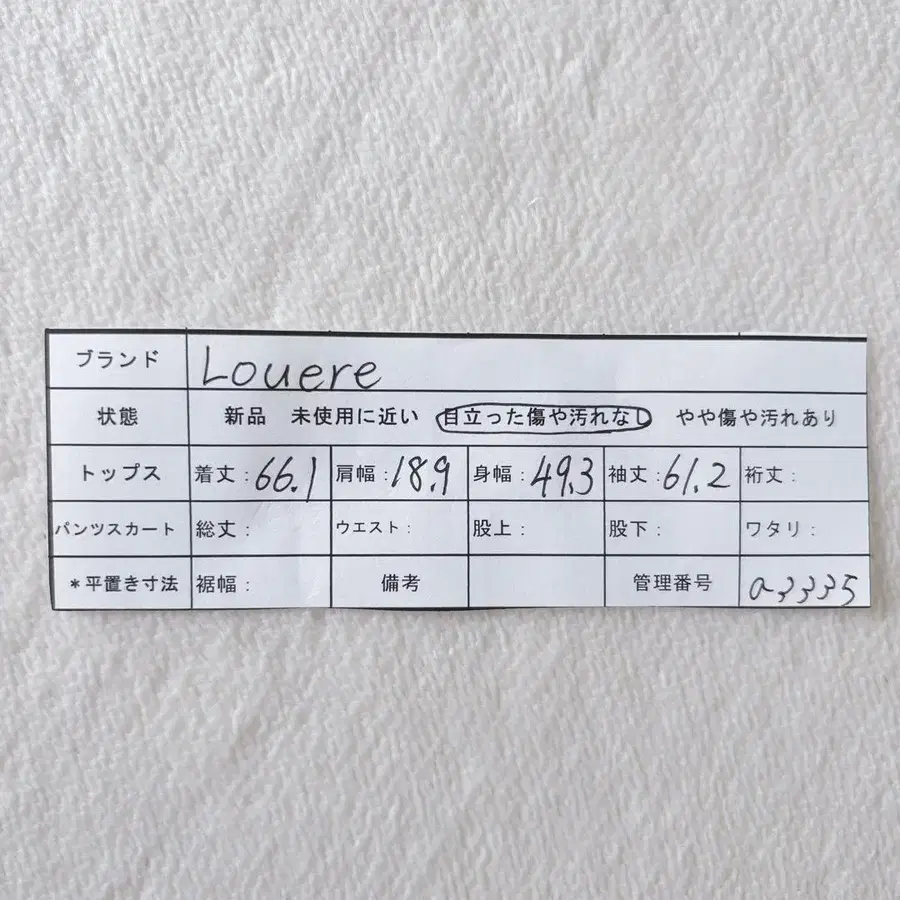 ブランド Louere
状態 新品 未使用に近い 目立った傷や汚れなし やや傷や汚れあり
トップス 着丈:66.1 肩幅:18.9 身幅:49.3 袖丈:61.2 裄丈:
パンツスカート 総丈: ウエスト: 股上: 股下: ワタリ:
*平置き寸法 裾幅: 備考 管理番号 a3335